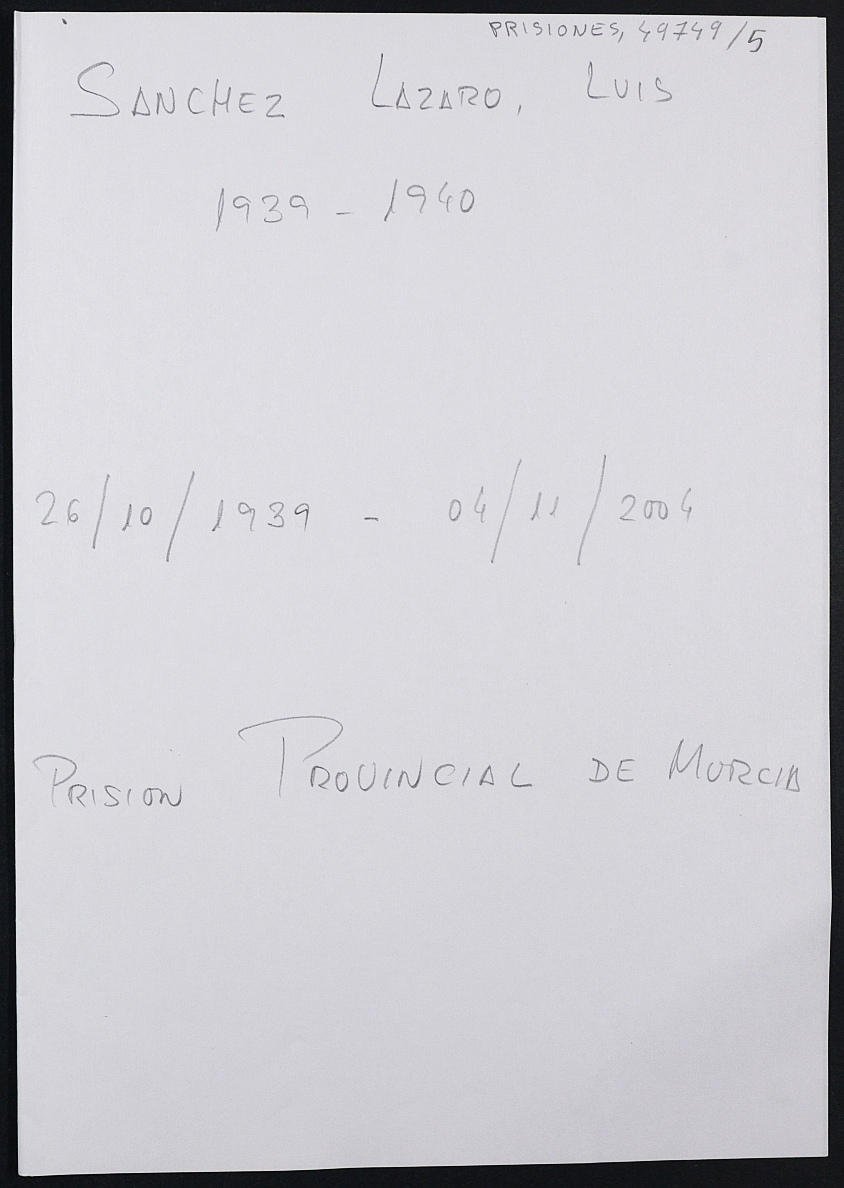 PRISIONES, 49749/5
SANCHEZ LAZARO, LUIS
1939 - 1940
26/10/1939 - 04/11/2004
PRISION PROVINCIAL DE MURCIA